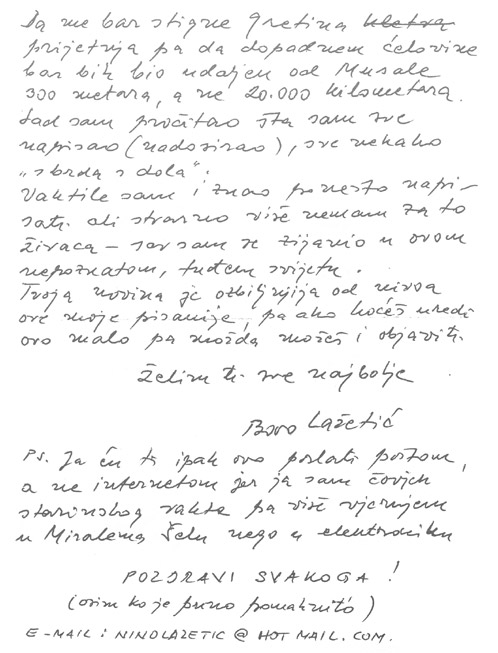 Da me bar stigne Gretina kletva
prijetnja pa da dopadnem ćelovine
bar bih bio udaljen od Musale
300 metara, a ne 20.000 kilometara.
Sad sam pročitao šta sam sve
napisao (nadosirao), sve nekako
„sbrda s dola".
Vaktile sam i znao ponešto napi-
sati ali stvarno više nemam za to
živaca – sav sam se zijanio u ovom
nepoznatom, tuđem svijetu.
Tvoja novina je ozbiljnija od nivoa
ove moje pisanije, pa ako hoćeš uredi
ovo malo pa možda možeš i objaviti.
Želim ti sve najbolje
Boro Lažetić
Ps. Ja ću ti ipak ovo poslati poštom,
a ne internetom jer ja sam čovjek
starinskog vakta pa više vjerujem
u Miralema nego u elektroniku
POZDRAVI SVAKOGA!
(osim ko je puno pomahnitô)
E-MAIL: NINOLAZETIC@HOTMAIL.COM.